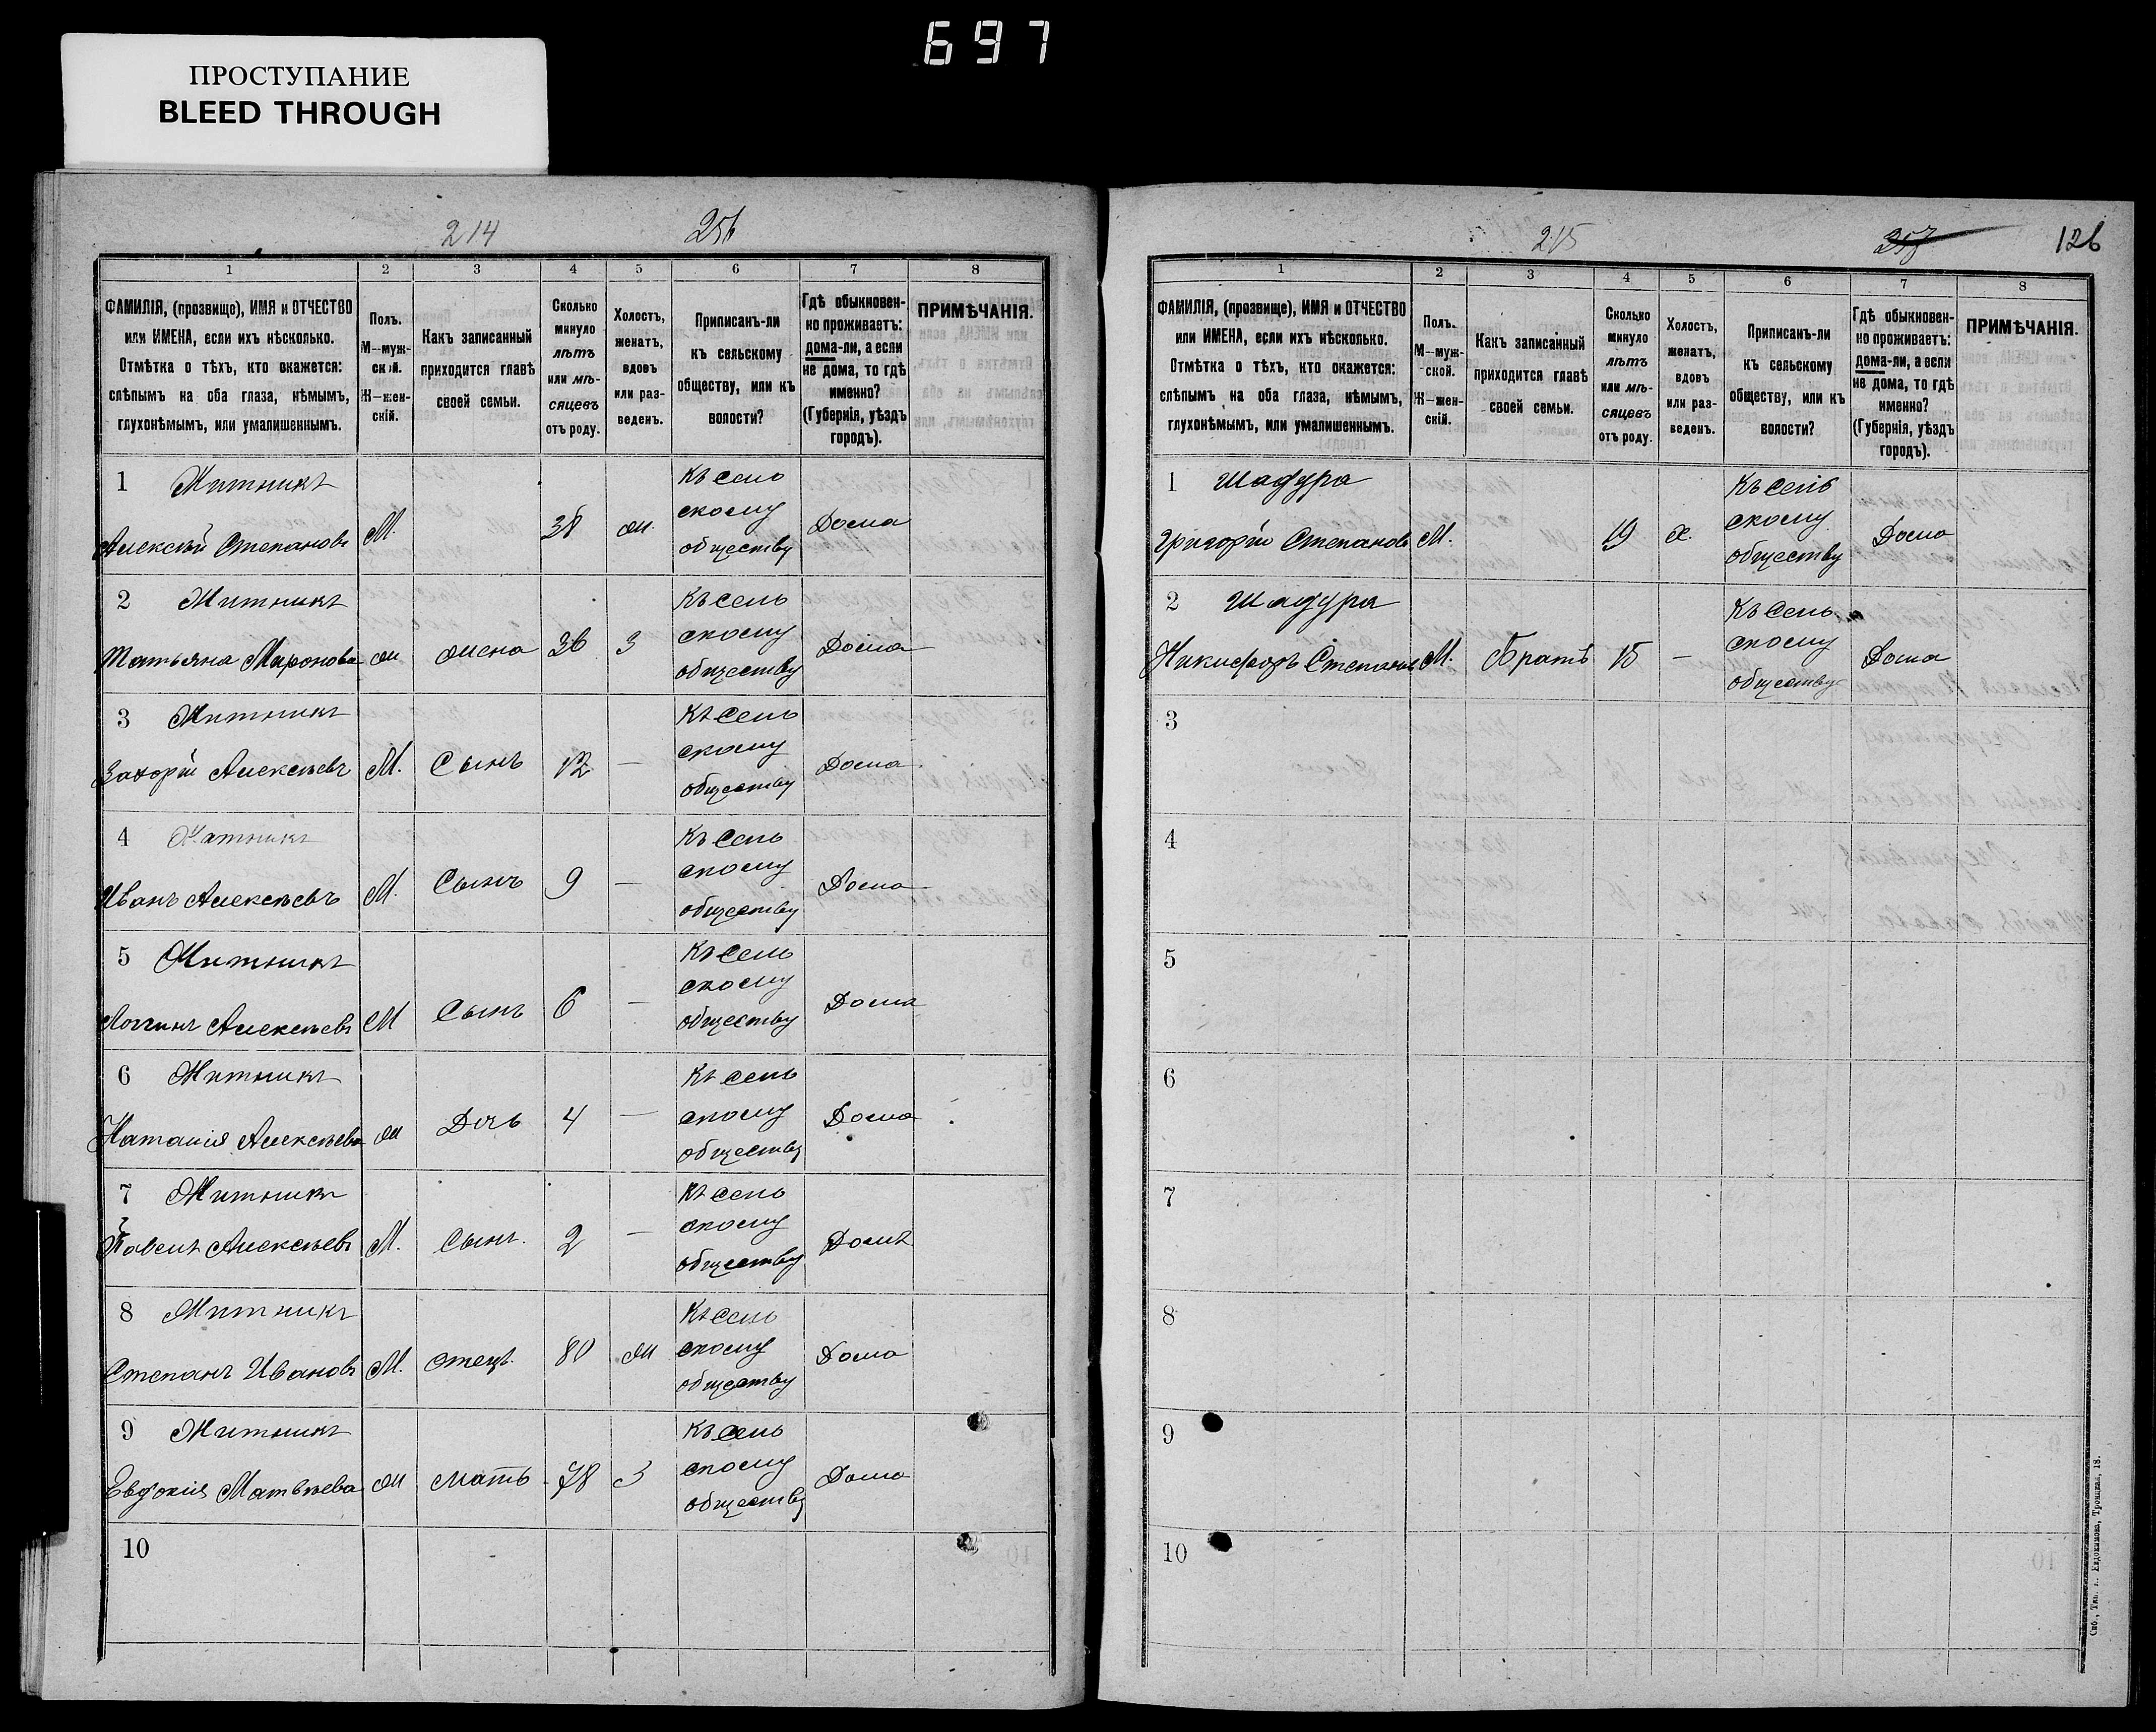 697
ПРОСТУПАНИЕ
BLEED THROUGH
214 256
1 2 3 4 5 6 7 8
ФАМИЛІЯ, (прозвище), ИМЯ и ОТЧЕСТВО или ИМЕНА, если ихъ нѣсколько. Отмѣтка о тѣхъ, кто окажется: слѣпымъ на оба глаза, нѣмымъ, глухонѣмымъ, или умалишеннымъ.
Полъ. М—муж-ской. Ж—жен-скій.
Какъ записанный приходится главѣ своей семьи.
Сколько минуло лѣтъ или мѣ-сяцевъ отъ роду.
Холостъ, женатъ, вдовъ или раз-веденъ.
Приписанъ-ли къ сельскому обществу, или къ волости?
Гдѣ обыкновен-но проживаетъ: дома-ли, а если не дома, то гдѣ именно? (Губернія, уѣздъ городъ).
ПРИМѢЧАНІЯ.
1 Митникъ
Алексѣй Степановъ М. 38 ж. Къ сель скому обществу Дома
2 Митникъ
Татьяна Миронова ж жена 36 З Къ сель скому обществу Дома
3 Митникъ
Захорій Алексѣевъ М. Сынъ 12 — Къ сель скому обществу Дома
4 Митникъ
Иванъ Алексѣевъ М. Сынъ 9 — Къ сель скому обществу Дома
5 Митникъ
Логинъ Алексѣевъ М Сынъ 6 — Къ сель скому обществу Дома
6 Митникъ
Наталія Алексѣева ж Дочь 4 — Къ сель скому обществу Дома
7 Митникъ
Павелъ Алексѣевъ М. Сынъ. 2 — Къ сель скому обществу Дома
8 Митникъ
Степанъ Ивановъ М. отецъ. 80 ж Къ сель скому обществу Дома
9 Митникъ
Евдокія Матвѣева ж мать 78 З Къ сель скому обществу Дома
10
215 257 126
1 2 3 4 5 6 7 8
ФАМИЛІЯ, (прозвище), ИМЯ и ОТЧЕСТВО или ИМЕНА, если ихъ нѣсколько. Отмѣтка о тѣхъ, кто окажется: слѣпымъ на оба глаза, нѣмымъ, глухонѣмымъ, или умалишеннымъ.
Полъ. М—муж-ской. Ж—жен-скій.
Какъ записанный приходится главѣ своей семьи.
Сколько минуло лѣтъ или мѣ-сяцевъ отъ роду.
Холостъ, женатъ, вдовъ или раз-веденъ.
Приписанъ-ли къ сельскому обществу, или къ волости?
Гдѣ обыкновен-но проживаетъ: дома-ли, а если не дома, то гдѣ именно? (Губернія, уѣздъ городъ).
ПРИМѢЧАНІЯ.
1 Шадура
Григорій Степановъ М. 19 х. Къ сель скому обществу Дома
2 Шадура
Никифоръ Степановъ М. Братъ 15 — Къ сель скому обществу Дома
3
4
5
6
7
8
9
10
Спб., Тип. Евдокимова, Троицкая, 18.